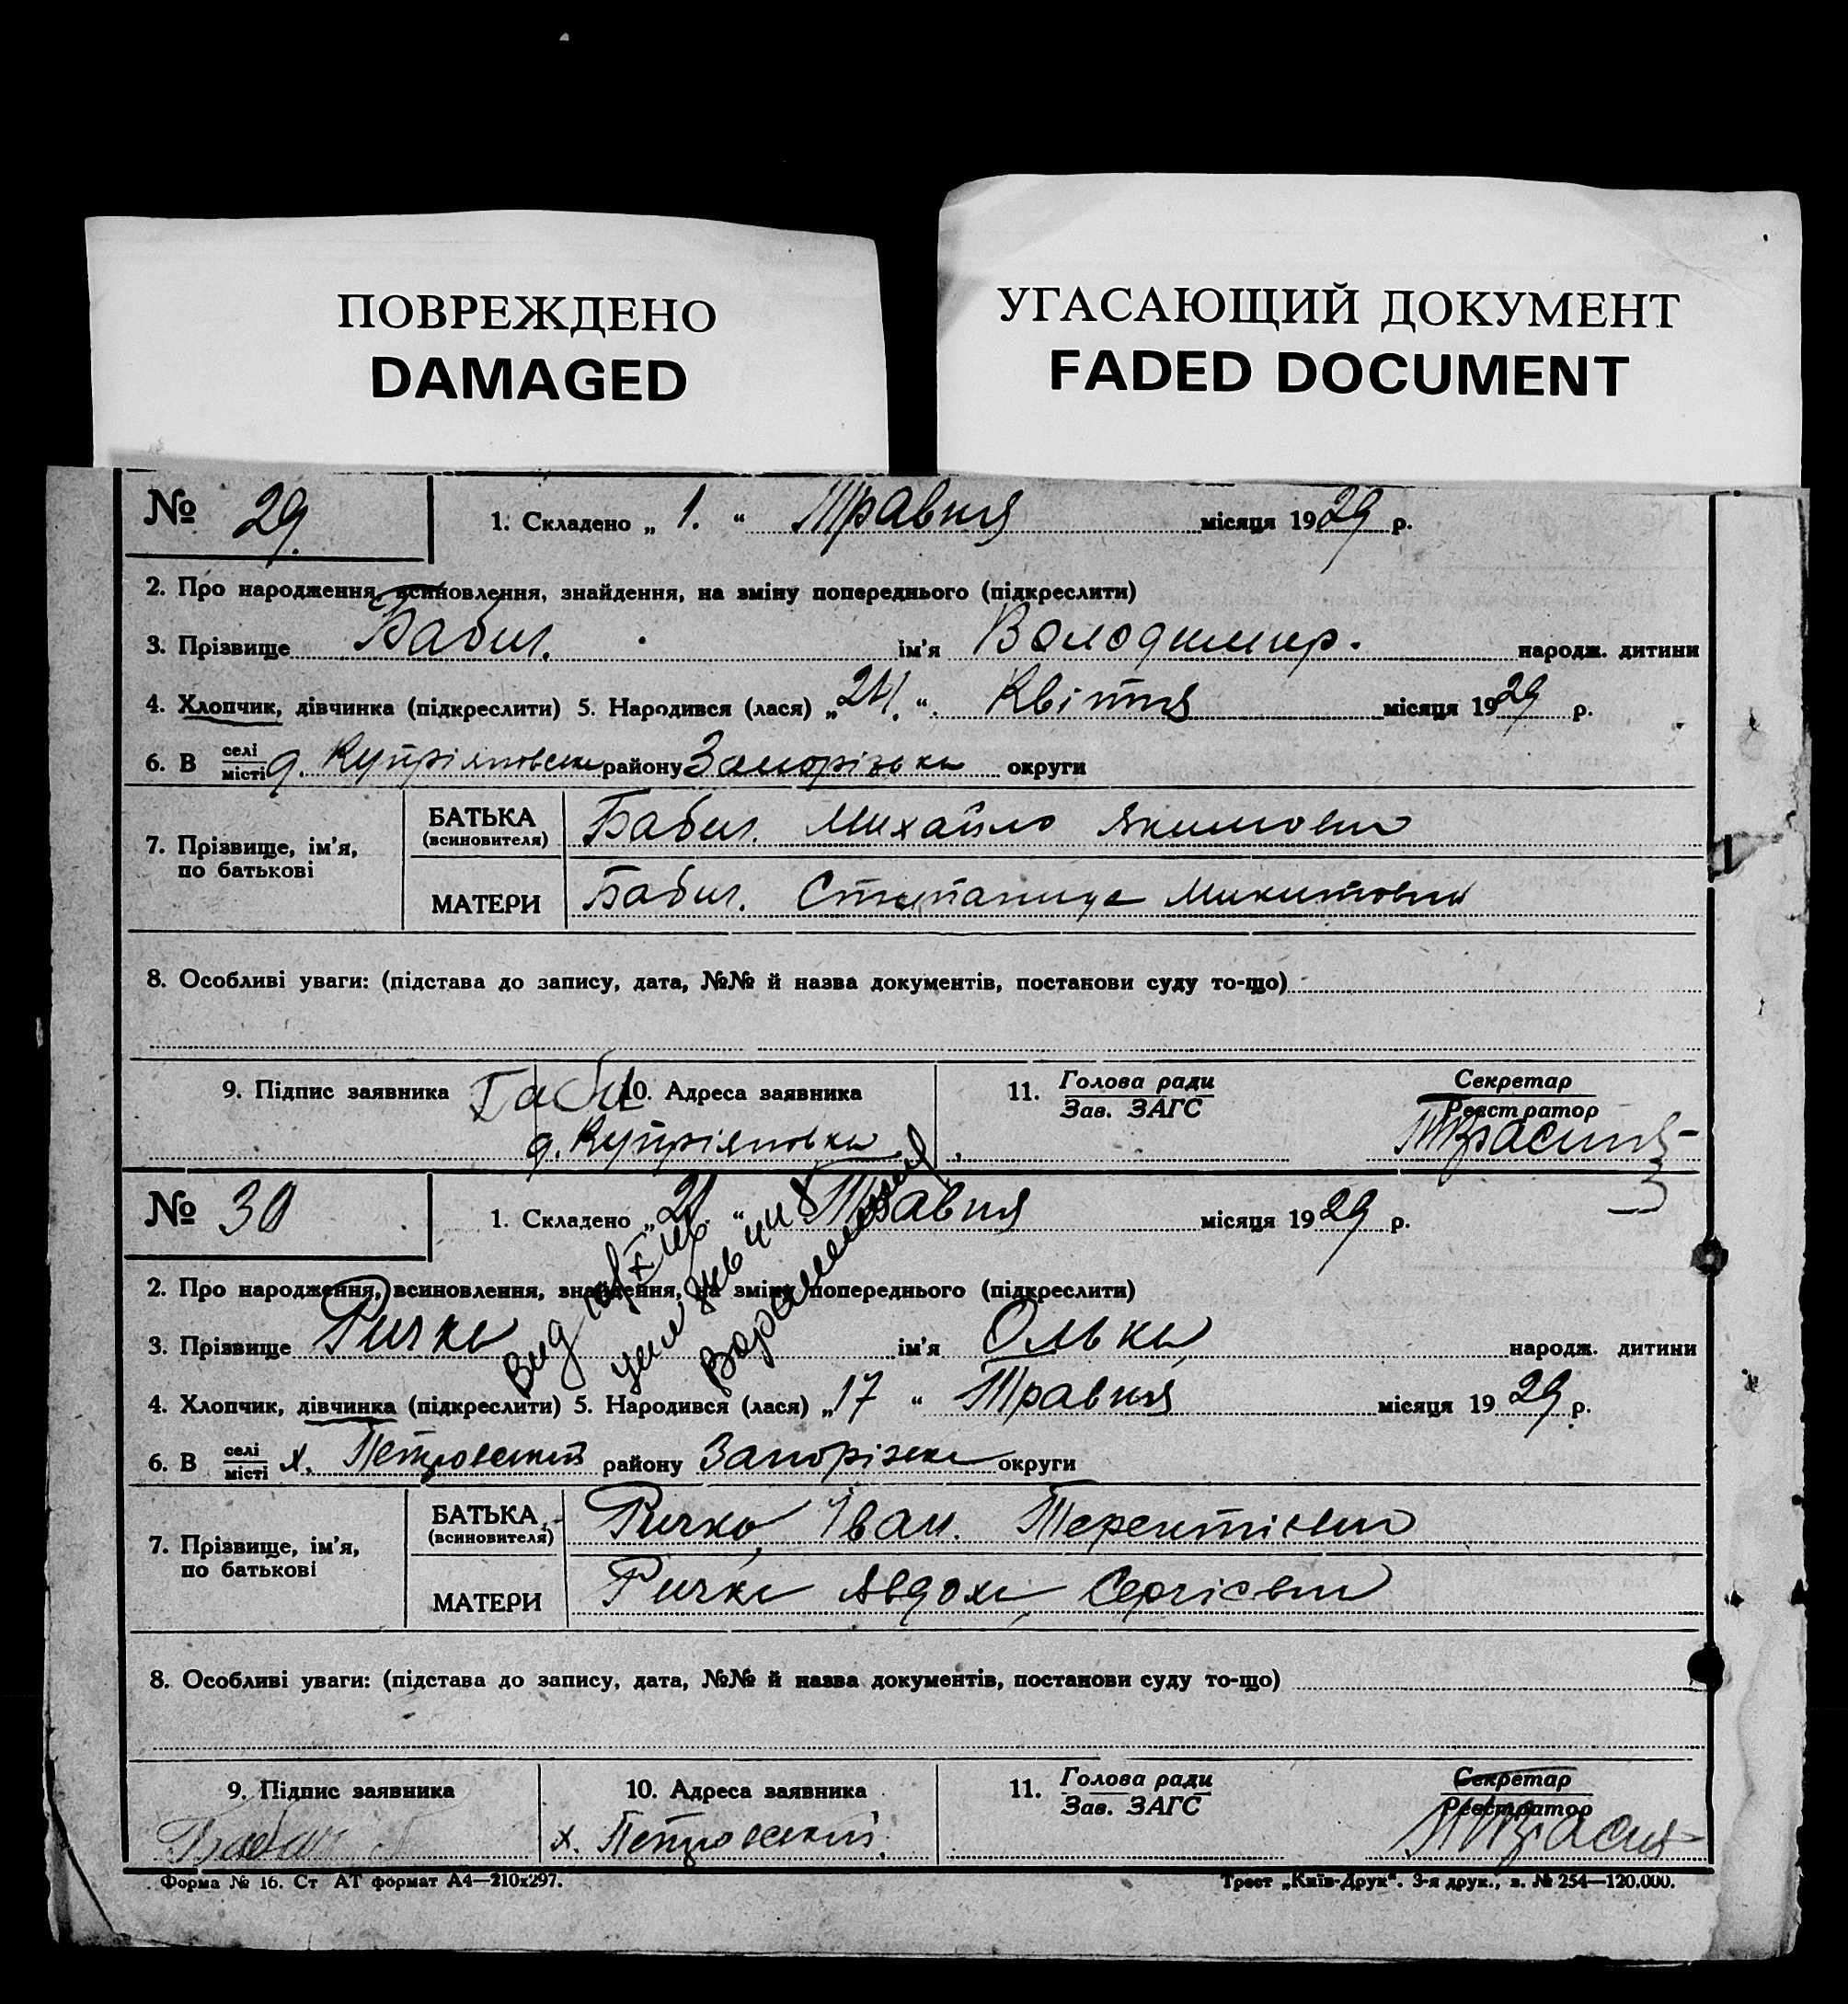 ПОВРЕЖДЕНО
DAMAGED
УГАСАЮЩИЙ ДОКУМЕНТ
FADED DOCUMENT
№ 29. 1. Складено „ 1. “ Травня місяця 1929 р.
2. Про народження, всиновлення, знайдення, на зміну попереднього (підкреслити)
3. Прізвище Бабич. ім'я Володимир. народж. дитини
4. Хлопчик, дівчинка (підкреслити) 5. Народився (лася) „24.“ Квітня місяця 1929 р.
6. В селі/місті району Запорізька округи
7. Прізвище, ім'я, по батькові
БАТЬКА (всиновителя) Бабич. Михайло Якимович
МАТЕРИ Бабич. Микитовна
8. Особливі уваги: (підстава до запису, дата, №№ й назва документів, постанови суду то-що)
9. Підпис заявника
10. Адреса заявника
д. Купріяновка
11. Голова ради / Зав. ЗАГС
Секретар / Реєстратор
№ 30 1. Складено „21.“ Травня місяця 1929 р.
2. Про народження, всиновлення, знайдення, на зміну попереднього (підкреслити)
3. Прізвище Ричка ім'я Олька народж. дитини
4. Хлопчик, дівчинка (підкреслити) 5. Народився (лася) „17 “ Травня місяця 1929 р.
6. В селі/місті х. Петровський району Запорізька округи
7. Прізвище, ім'я, по батькові
БАТЬКА (всиновителя) Ричко, Іван. Терентієвич
МАТЕРИ Ричка Авдоха Сергієвна
8. Особливі уваги: (підстава до запису, дата, №№ й назва документів, постанови суду то-що)
9. Підпис заявника
10. Адреса заявника
х. Петровский.
11. Голова ради / Зав. ЗАГС
Секретар / Реєстратор
Форма № 16. Ст АТ формат А4—210х297.
Трест „Київ-Друк“. 3-я друк., з. № 254—120.000.